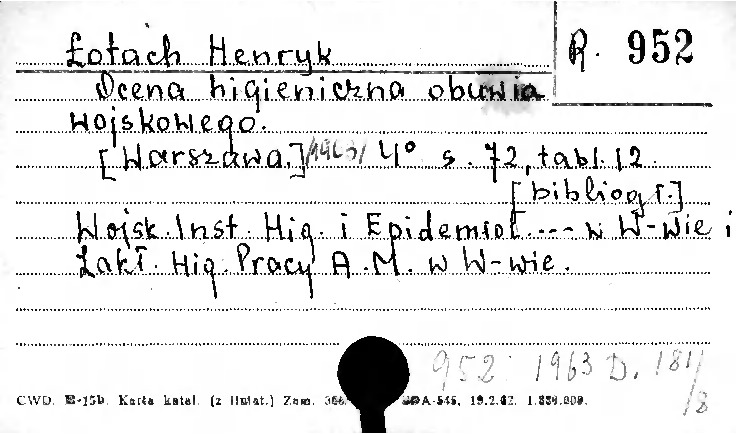 Łotach Henryk
R. 952
Ocena higieniczna obuwia
wojskowego.
[Warszawa.] /1963/ 4° s. 72, tabl. 12.
[bibliogr.]
Wojsk. Inst. Hig. i Epidemiol. --- w W-wie i
Zakł. Hig. Pracy A.M. w W-wie.
952: 1963 D. 181/8
CWD. Karta katal. (z Zam. 19.2.62.